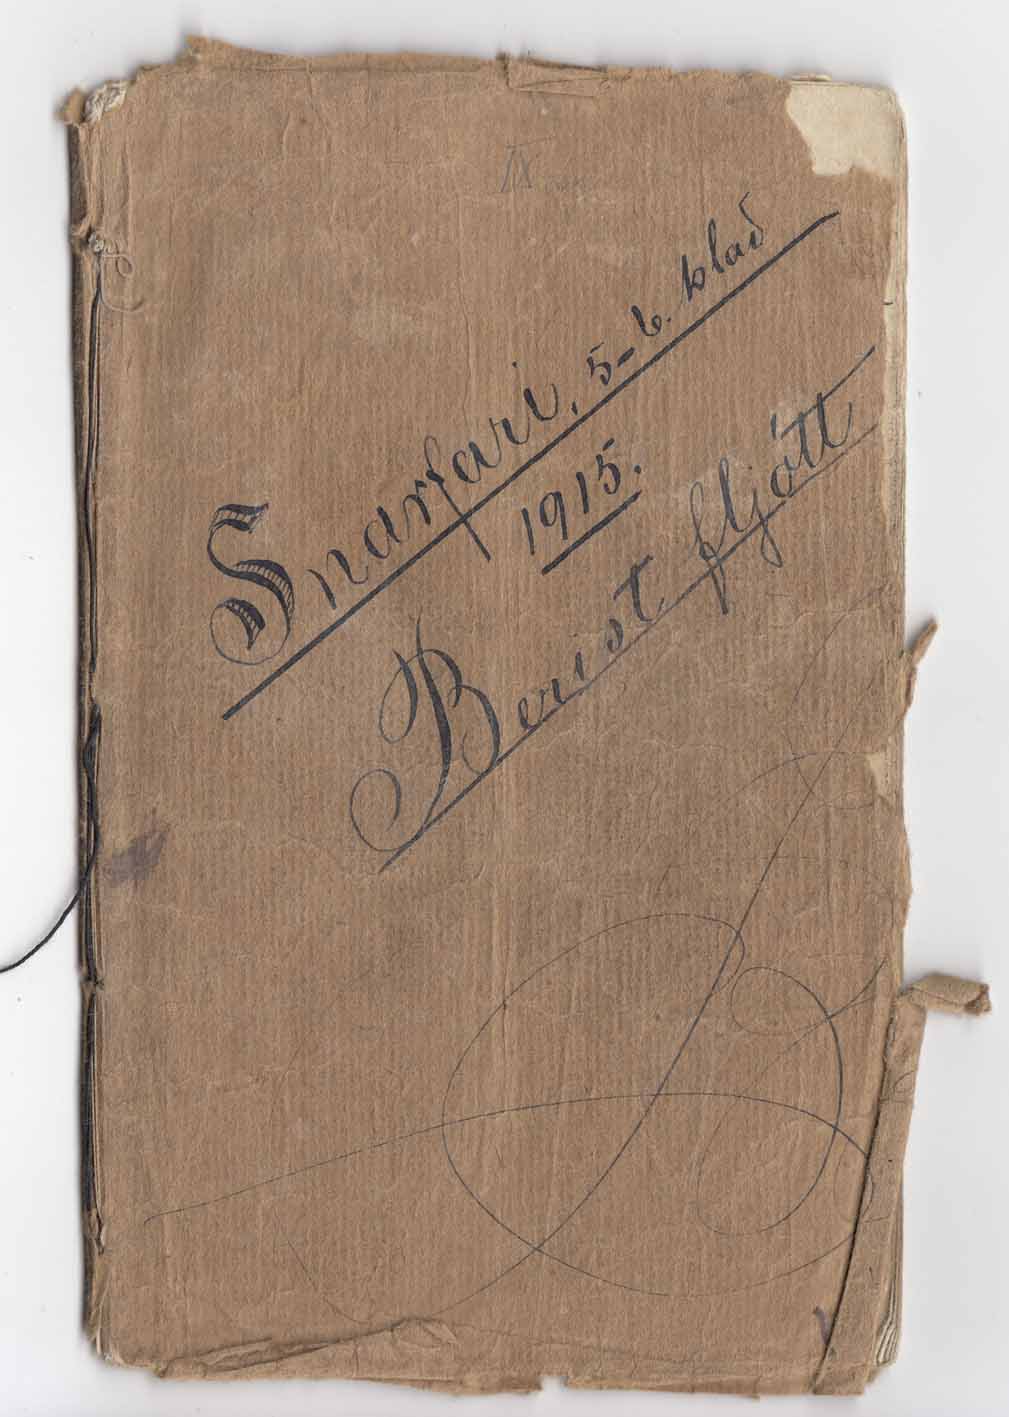 IX
Snarfari, 5-6. blað
1915.
Berist fljótt